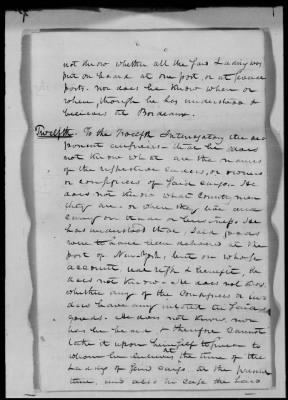 not know whether all the said Lading was
put on board at one port or at several
ports. nor does he know when or
where, though he has understood &
believes at Bordeaux.
Twelfth. To the twelfth Interrogatory the de
ponent answers that he does
not know what are the names
of the respective laders, or owners
or consignees of said cargo. He
does not know what country men
they are. or where they live and
carry on trade or business. He
has understood that said goods
were to have been delivered at the
port of New York, but on whose
account risk & benefit, he
does not know. He does not know
whether any of the consignees or
have any interest in said
goods. He does not know, nor
has he heard & therefore cannot
take it upon himself to swear to
whom he believes, at the time of the
Lading of said cargo, at the present
time, and also in case the said